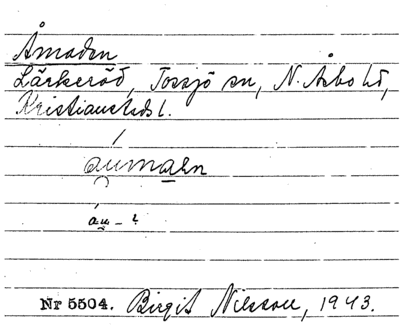 Åmaden
Lärkeröd, Tossjö sn, N. Åsbo hd,
Kristianstads l.
áu̯maen
áu̯ - ?
Nr 5504. Birgit Nilsson, 1943.